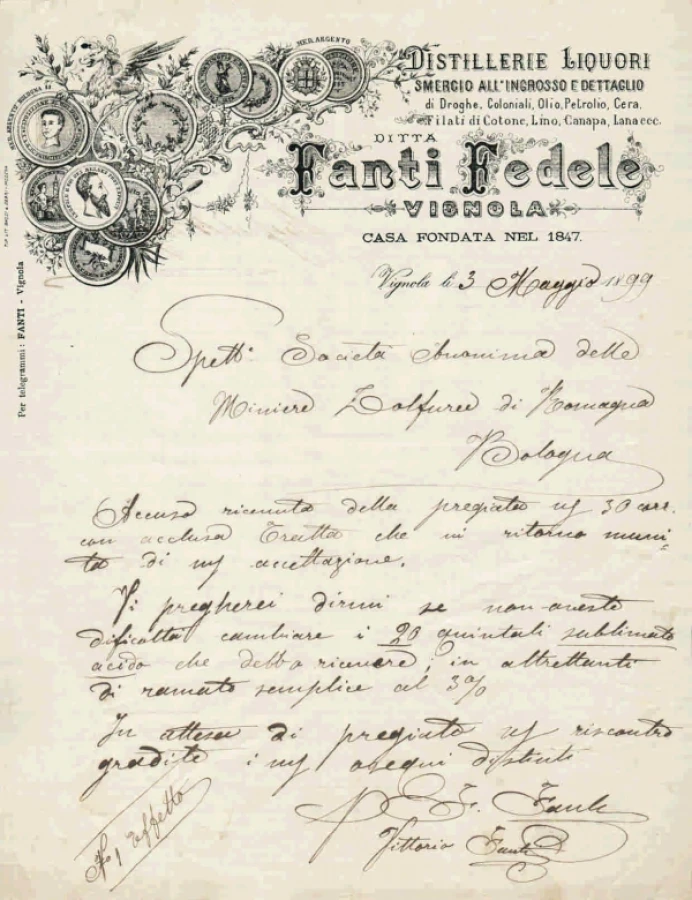 MED. ARGENTO
DISTILLERIE LIQUORI
SMERCIO ALL'INGROSSO E DETTAGLIO
di Droghe, Coloniali, Olio, Petrolio, Cera,
Filati di Cotone, Lino, Canapa, Lana ecc.
DITTA
Fanti Fedele
VIGNOLA
CASA FONDATA NEL 1847.
Per telegrammi: FANTI - Vignola
Vignola li 3 Maggio 1899
Spett. Società Anonima delle
Miniere Zolfuree di Romagna
Bologna
Accuso ricevuta della pregiata vs 30 corr.
con acclusa Tratta che vi ritorno muni-
ta di ms accettazione.
Vi pregherei dirmi se non aveste
dificoltà cambiare i 20 quintali sublimato
acido che debbo ricevere, in altrettanti
di ramato semplice al 3%
In attesa di pregiato vs riscontro
gradite i ms ossequi distinti
p F. Fanti
Vittorio Fanti
N 1 effetto